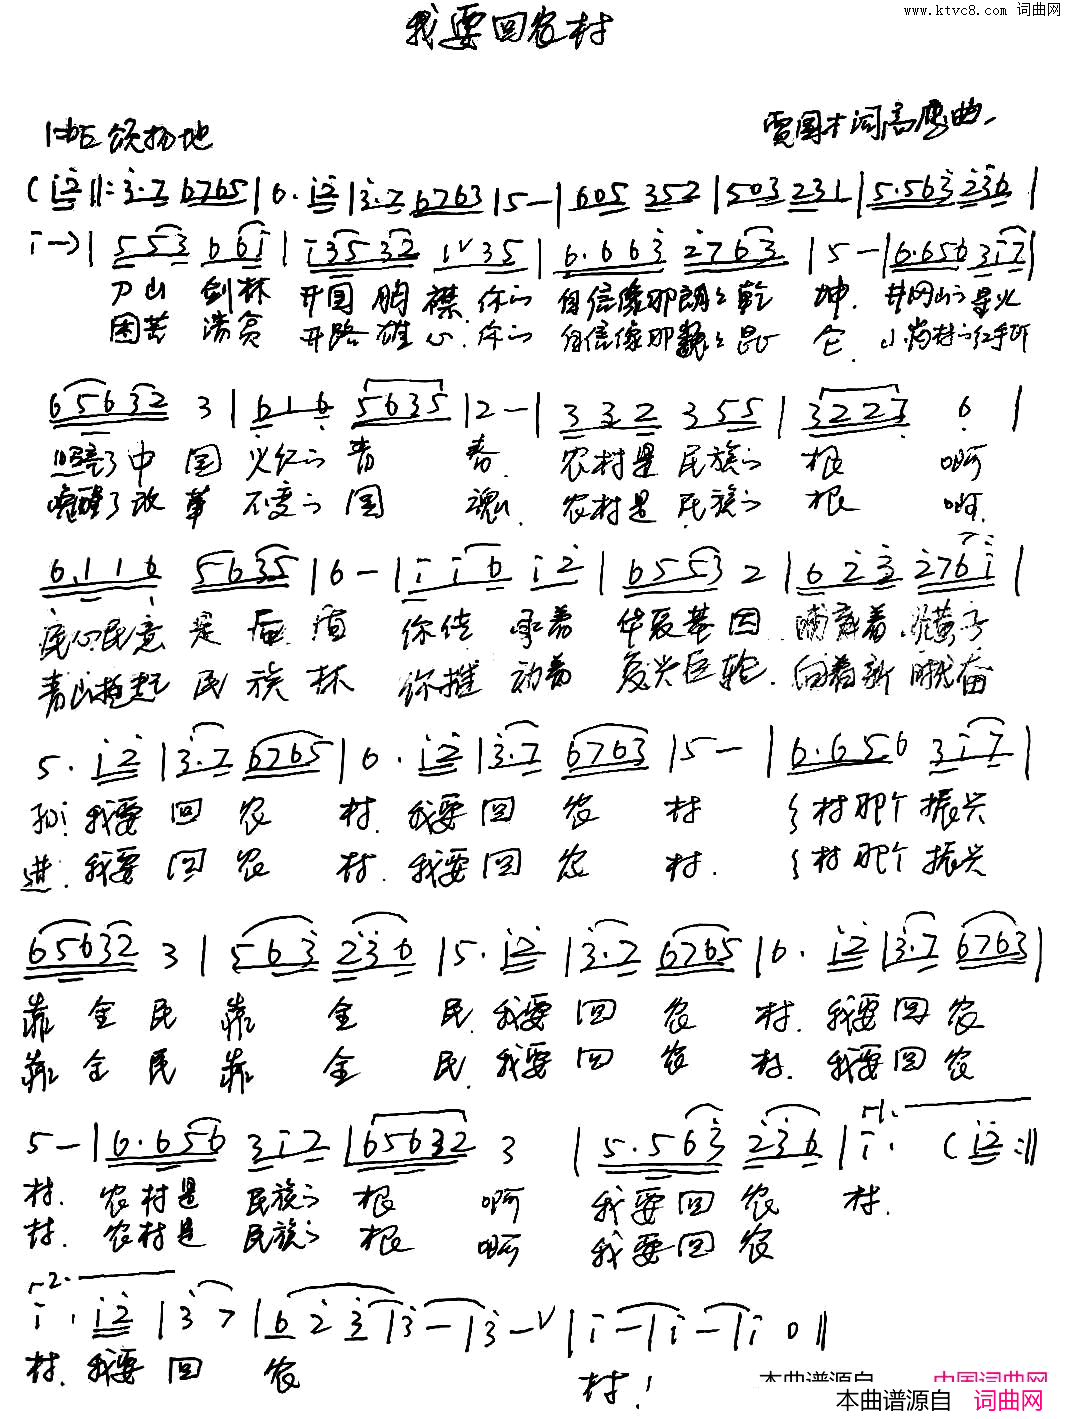 www.ktvc8.com 词曲网
我要回农村
1=bE 颂扬地
贾国才词 高鹰曲
(i2||:3·7 6765|6·i2|3·7 6763|5-|605 352|503 231|5·563 236|
i-)|553 66i|i3532 1∨35|6·663 2763|5-|6·656 3i7|
刀山 剑林 开国胸襟.你的 自信像那朗朗乾 坤.井冈山的星火
困苦 清贫 开路雄心.你的 自信像那巍巍昆 仑.小岗村的红手印
65632 3|616 5635|2-|332 355|3227 6|
照亮了中国 火红的青 春.农村是民族的根 啊
唤醒了改革 不变的国 魂.农村是民族的根 啊.
6·116 5635|6-|ii6 i2|6553 2|623 276i|
民心民意是 你传承着 华夏基因.哺育着 子
青山挺起民族林 你推动着 复兴巨轮.向着新时代奋
5·i2|3·7 6765|6·i2|3·7 6763|5-|6·656 3i7|
孙!我要回农 村.我要回农 村 乡村那个振兴
进.我要回农 村.我要回农 村.乡村那个振兴
65632 3|563 236|5·i2|3·7 6765|6·i2|3·7 6763|
靠全民 靠全 民.我要回农 村.我要回农
靠全民 靠全 民.我要回农 村.我要回农
5-|6·656 3i2|65632 3|5·563 236|i· (i2:||
村.农村是民族的根 啊 我要回农 村.
村.农村是民族的根 啊 我要回农
i·i2|3 7|623|3-|3-∨|i-|i-|i 0||
村.我要回 农 村!
本曲谱源自 中国词曲网
本曲谱源自 词曲网